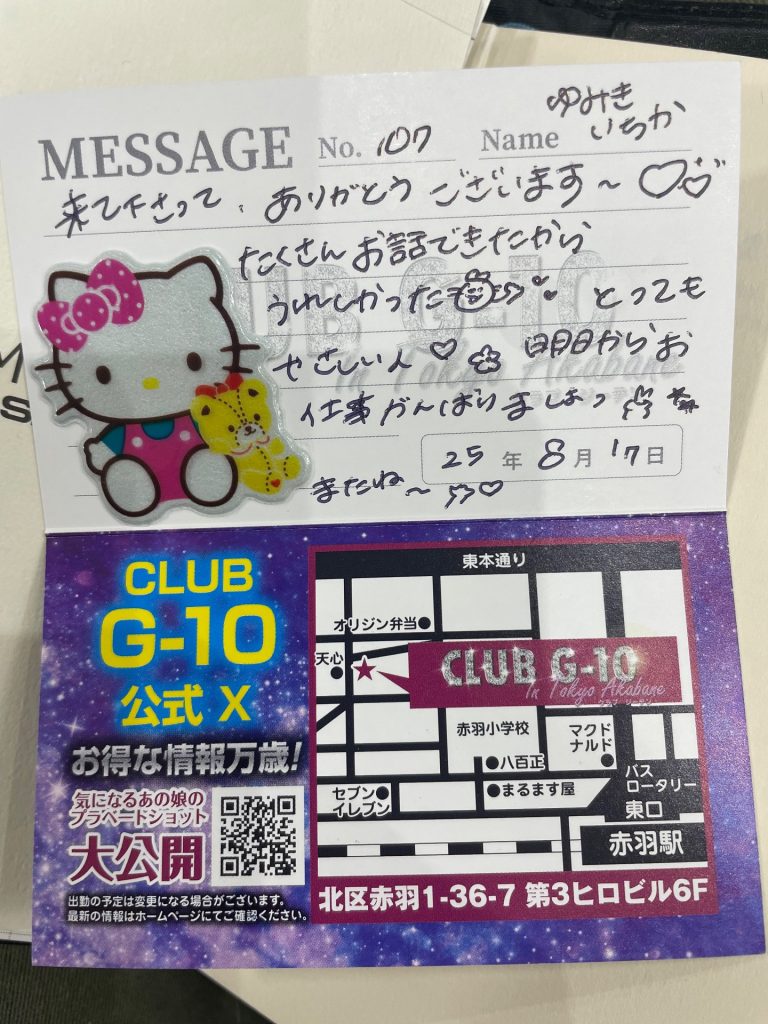 MESSAGE No. 107 Name ゆみき いちか
来て下さって、ありがとうございます～♡
たくさんお話できたから
うれしかった とっても
やさしい人♡ 明日からお
仕事がんばりましょっ
25年8月17日
またね～♡
CLUB G-10
In Tokyo Akabane
CLUB
G-10
公式 X
お得な情報万歳!
気になるあの娘の
プラベートショット
大公開
出勤の予定は変更になる場合がございます。
最新の情報はホームページにてご確認ください。
東本通り
オリジン弁当
天心
CLUB G-10
In Tokyo Akabane
クラブ ジーテン
赤羽小学校
マクド
ナルド
八百正
セブン
イレブン
まるます屋
バス
ロータリー
東口
赤羽駅
北区赤羽1-36-7 第3ヒロビル6F